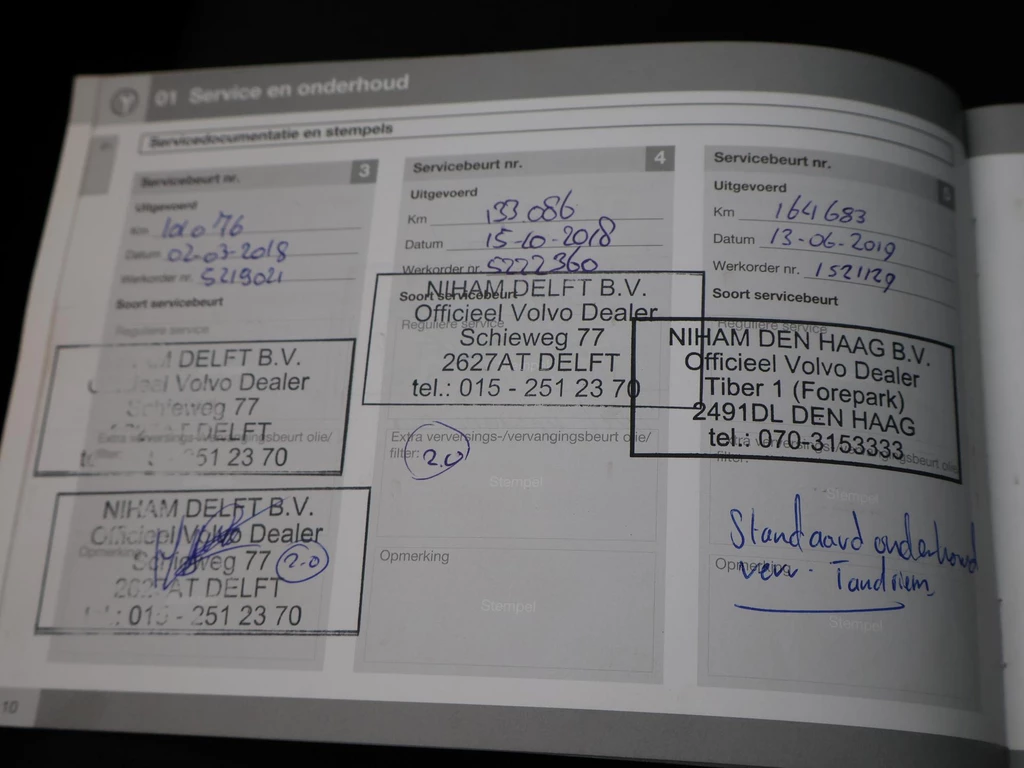 01 Service en onderhoud
Servicedocumentatie en stempels
Servicebeurt nr. 3
Uitgevoerd
Km
Datum 02-03-2018
Werkorder nr. 5219021
Soort servicebeurt
Reguliere service
DELFT B.V.
Volvo Dealer
Schieweg 77
DELFT
Extra verversings-/vervangingsbeurt olie/
51 23 70
NIHAM DELFT B.V.
Officieel Volvo Dealer
Opmerking
Schieweg 77 2.0
AT DELFT
: 015 - 251 23 70
Servicebeurt nr. 4
Uitgevoerd
Km 133.086
Datum 15-10-2018
Werkorder nr. 5222360
Soort servicebeurt
NIHAM DELFT B.V.
Officieel Volvo Dealer
Reguliere service
Schieweg 77
2627AT DELFT
tel.: 015 - 251 23 70
Extra verversings-/vervangingsbeurt olie/
filter: 2.0
Stempel
Opmerking
Stempel
Servicebeurt nr. 5
Uitgevoerd
Km 164683
Datum 13-06-2019
Werkorder nr. 1521129
Soort servicebeurt
Reguliere service
NIHAM DEN HAAG B.V.
Officieel Volvo Dealer
Tiber 1 (Forepark)
2491DL DEN HAAG
tel.: 070-3153333
Extra verversings-/vervangingsbeurt olie/
filter:
Stempel
Standaard onderhoud
Opmerking
verv. Tandriem
Stempel
10